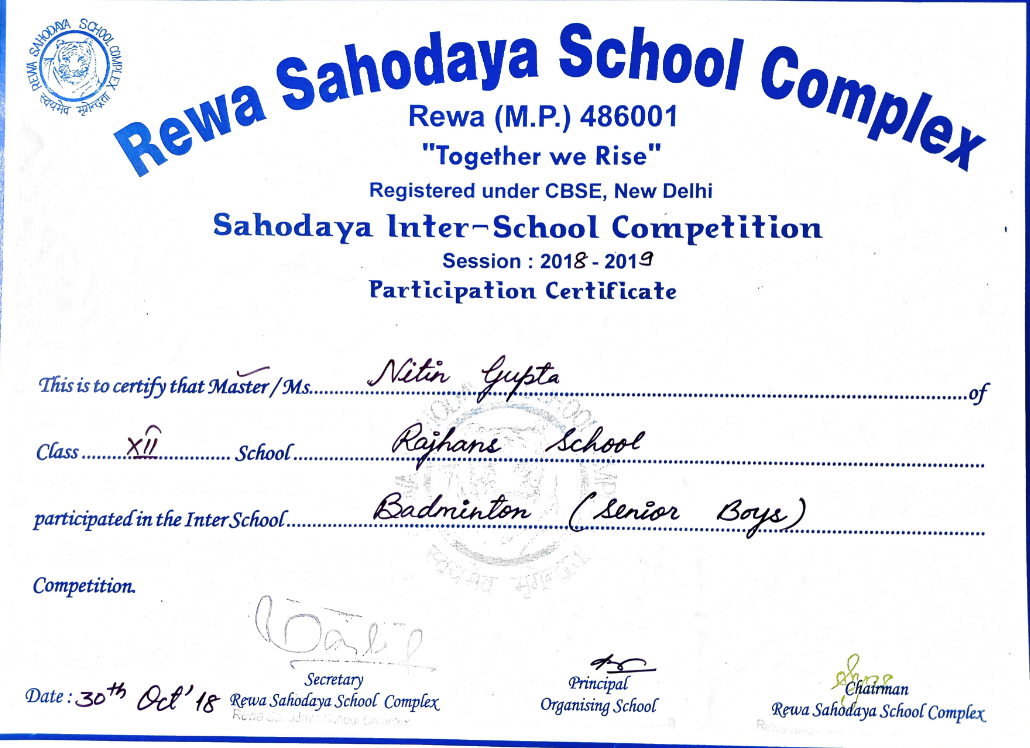 REWA SAHODAYA SCHOOL COMPLEX
स्वयमेव मृगेन्द्रता
Rewa Sahodaya School Complex
Rewa (M.P.) 486001
"Together we Rise"
Registered under CBSE, New Delhi
Sahodaya Inter-School Competition
Session : 2018 - 2019
Participation Certificate
This is to certify that Master / Ms. Nitin Gupta of
Class XII School Rajhans School
participated in the Inter School Badminton (Senior Boys)
Competition.
Date : 30th Oct' 18
Secretary
Rewa Sahodaya School Complex
Rewa Sahodaya School Complex
Principal
Organising School
Chairman
Rewa Sahodaya School Complex